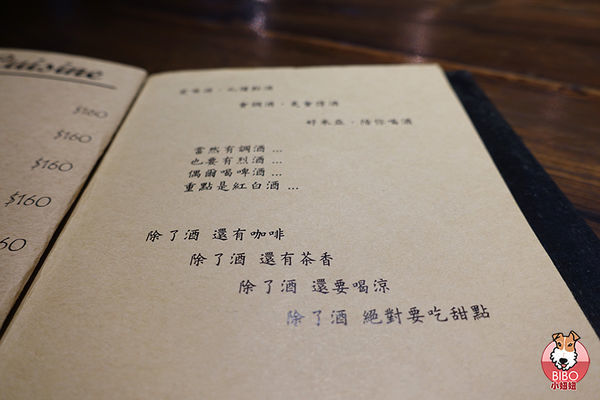 Cuisine
$160
$160
$160
$160
會調酒，更會停酒
好東西，陪你喝酒
當然有調酒 ...
也要有烈酒 ...
偶爾喝啤酒 ...
重點是紅白酒 ...
除了酒 還有咖啡
除了酒 還有茶香
除了酒 還要喝涼
除了酒 絕對要吃甜點
BIBO
小妞妞